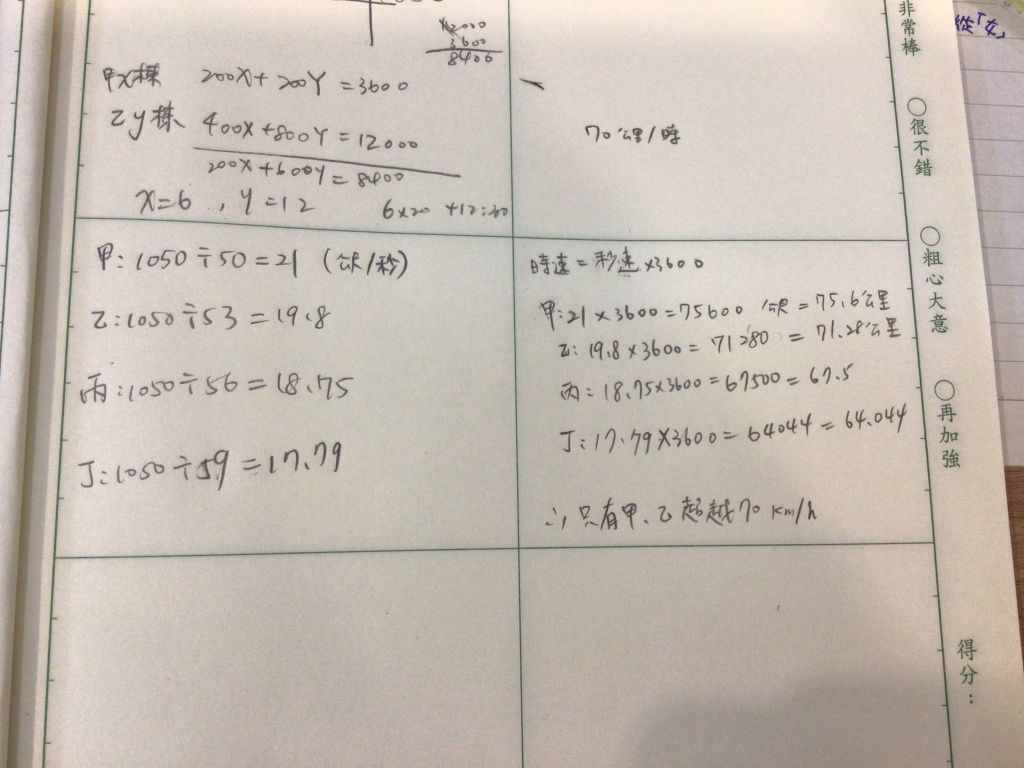 x2000
3600
8400
甲x棟 200X + 200Y = 3600
乙y棟 400X + 800Y = 12000
200X + 600Y = 8400
X = 6 , Y = 12 6×20 +12=
70公里/時
甲:1050÷50=21 (公尺/秒)
乙:1050÷53 = 19.8
丙:1050÷56=18.75
丁:1050÷59=17.79
時速=秒速×3600
甲:21×3600=75600 公尺=75.6公里
乙:19.8×3600= 71280 = 71.28公里
丙:18.75×3600=67500=67.5
丁:17.79×3600=64044=64.044
∴只有甲、乙超越70 km/h
非常棒
○很不錯
○粗心大意
○再加強
得分:
從「女」